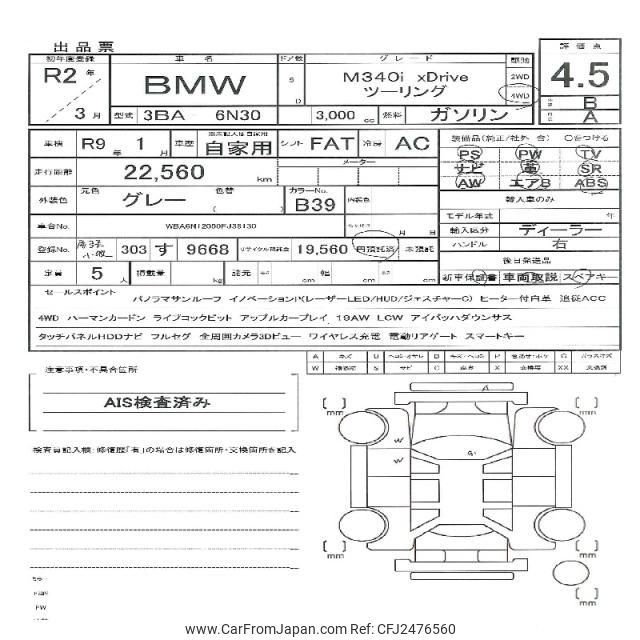 出品票
初年度登録
車名
ドア数
グレード
駆動
評価点
R2年
BMW
5
D
M340i xDrive
ツーリング
2WD
4WD
4.5
3月
型式 3BA 6N30
3,000 cc
燃料 ガソリン
B
A
車検 R9年 1月
車歴 自家用
シフト FAT
冷房 AC
装備品(純正/社外 含) ○をつける
PS PW TV
走行距離 22,560 km
メーター
サビ 革 SR
AW エアB ABS
外装色
元色
グレー
色替
カラーNo.
B39
内装色
輸入車のみ
モデル年式 年
車台No.
輸入区分 ディーラー
登録No. 303 す 9668
リサイクル預託金 19,560 円預託済 未預託
ハンドル 右
後日発送品
定員 5人
積載量 kg
諸元 長さ cm 幅 cm 高さ cm
新車保証書 車両取説 スペアキー
セールスポイント
パノラマサンルーフ イノベーションP(レーザーLED/HUD/ジェスチャーC) ヒーター付白革 追従ACC
4WD ハーマンカードン ライブコックピット アップルカープレイ 19AW LCW アイバッハダウンサス
タッチパネルHDDナビ フルセグ 全周囲カメラ3Dビュー ワイヤレス充電 電動リアゲート スマートキー
注意事項・不具合箇所
AIS検査済み
検査員記入欄:修復歴「有」の場合は修復箇所・交換箇所を記入
A
[ ] mm
[ ] mm
W
W
G
[ ] mm
[ ] mm
[ ] mm
PW
www.CarFromJapan.com Ref: CFJ2476560